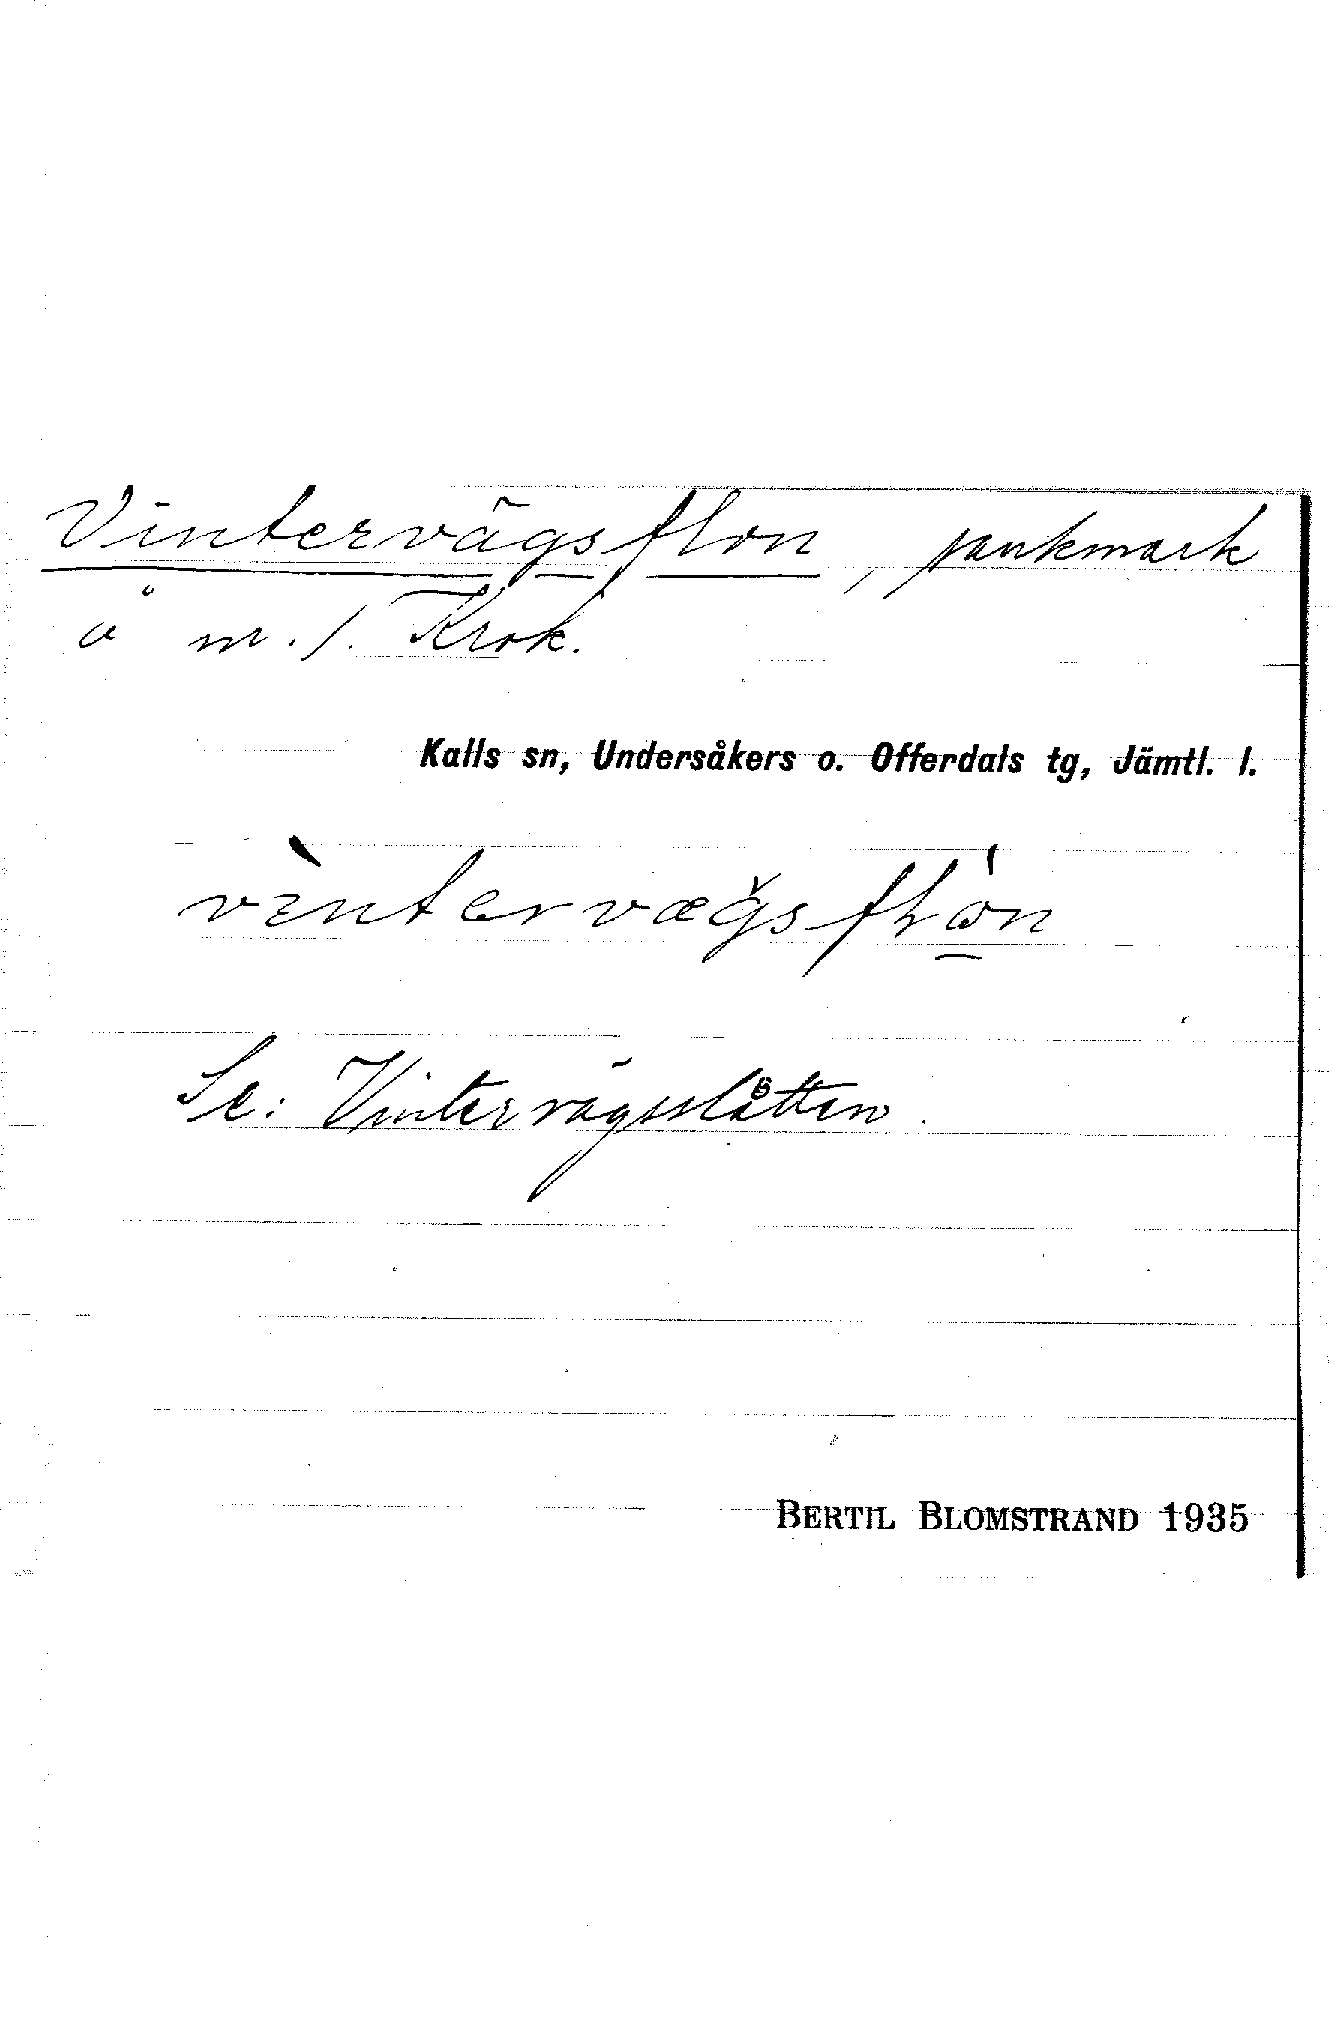 Vintervägsflon, sankmark
å m. l. Krok.
Kalls sn, Undersåkers o. Offerdals tg, Jämtl. l.
Se: Vintervägsslåtten.
BERTIL BLOMSTRAND 1935